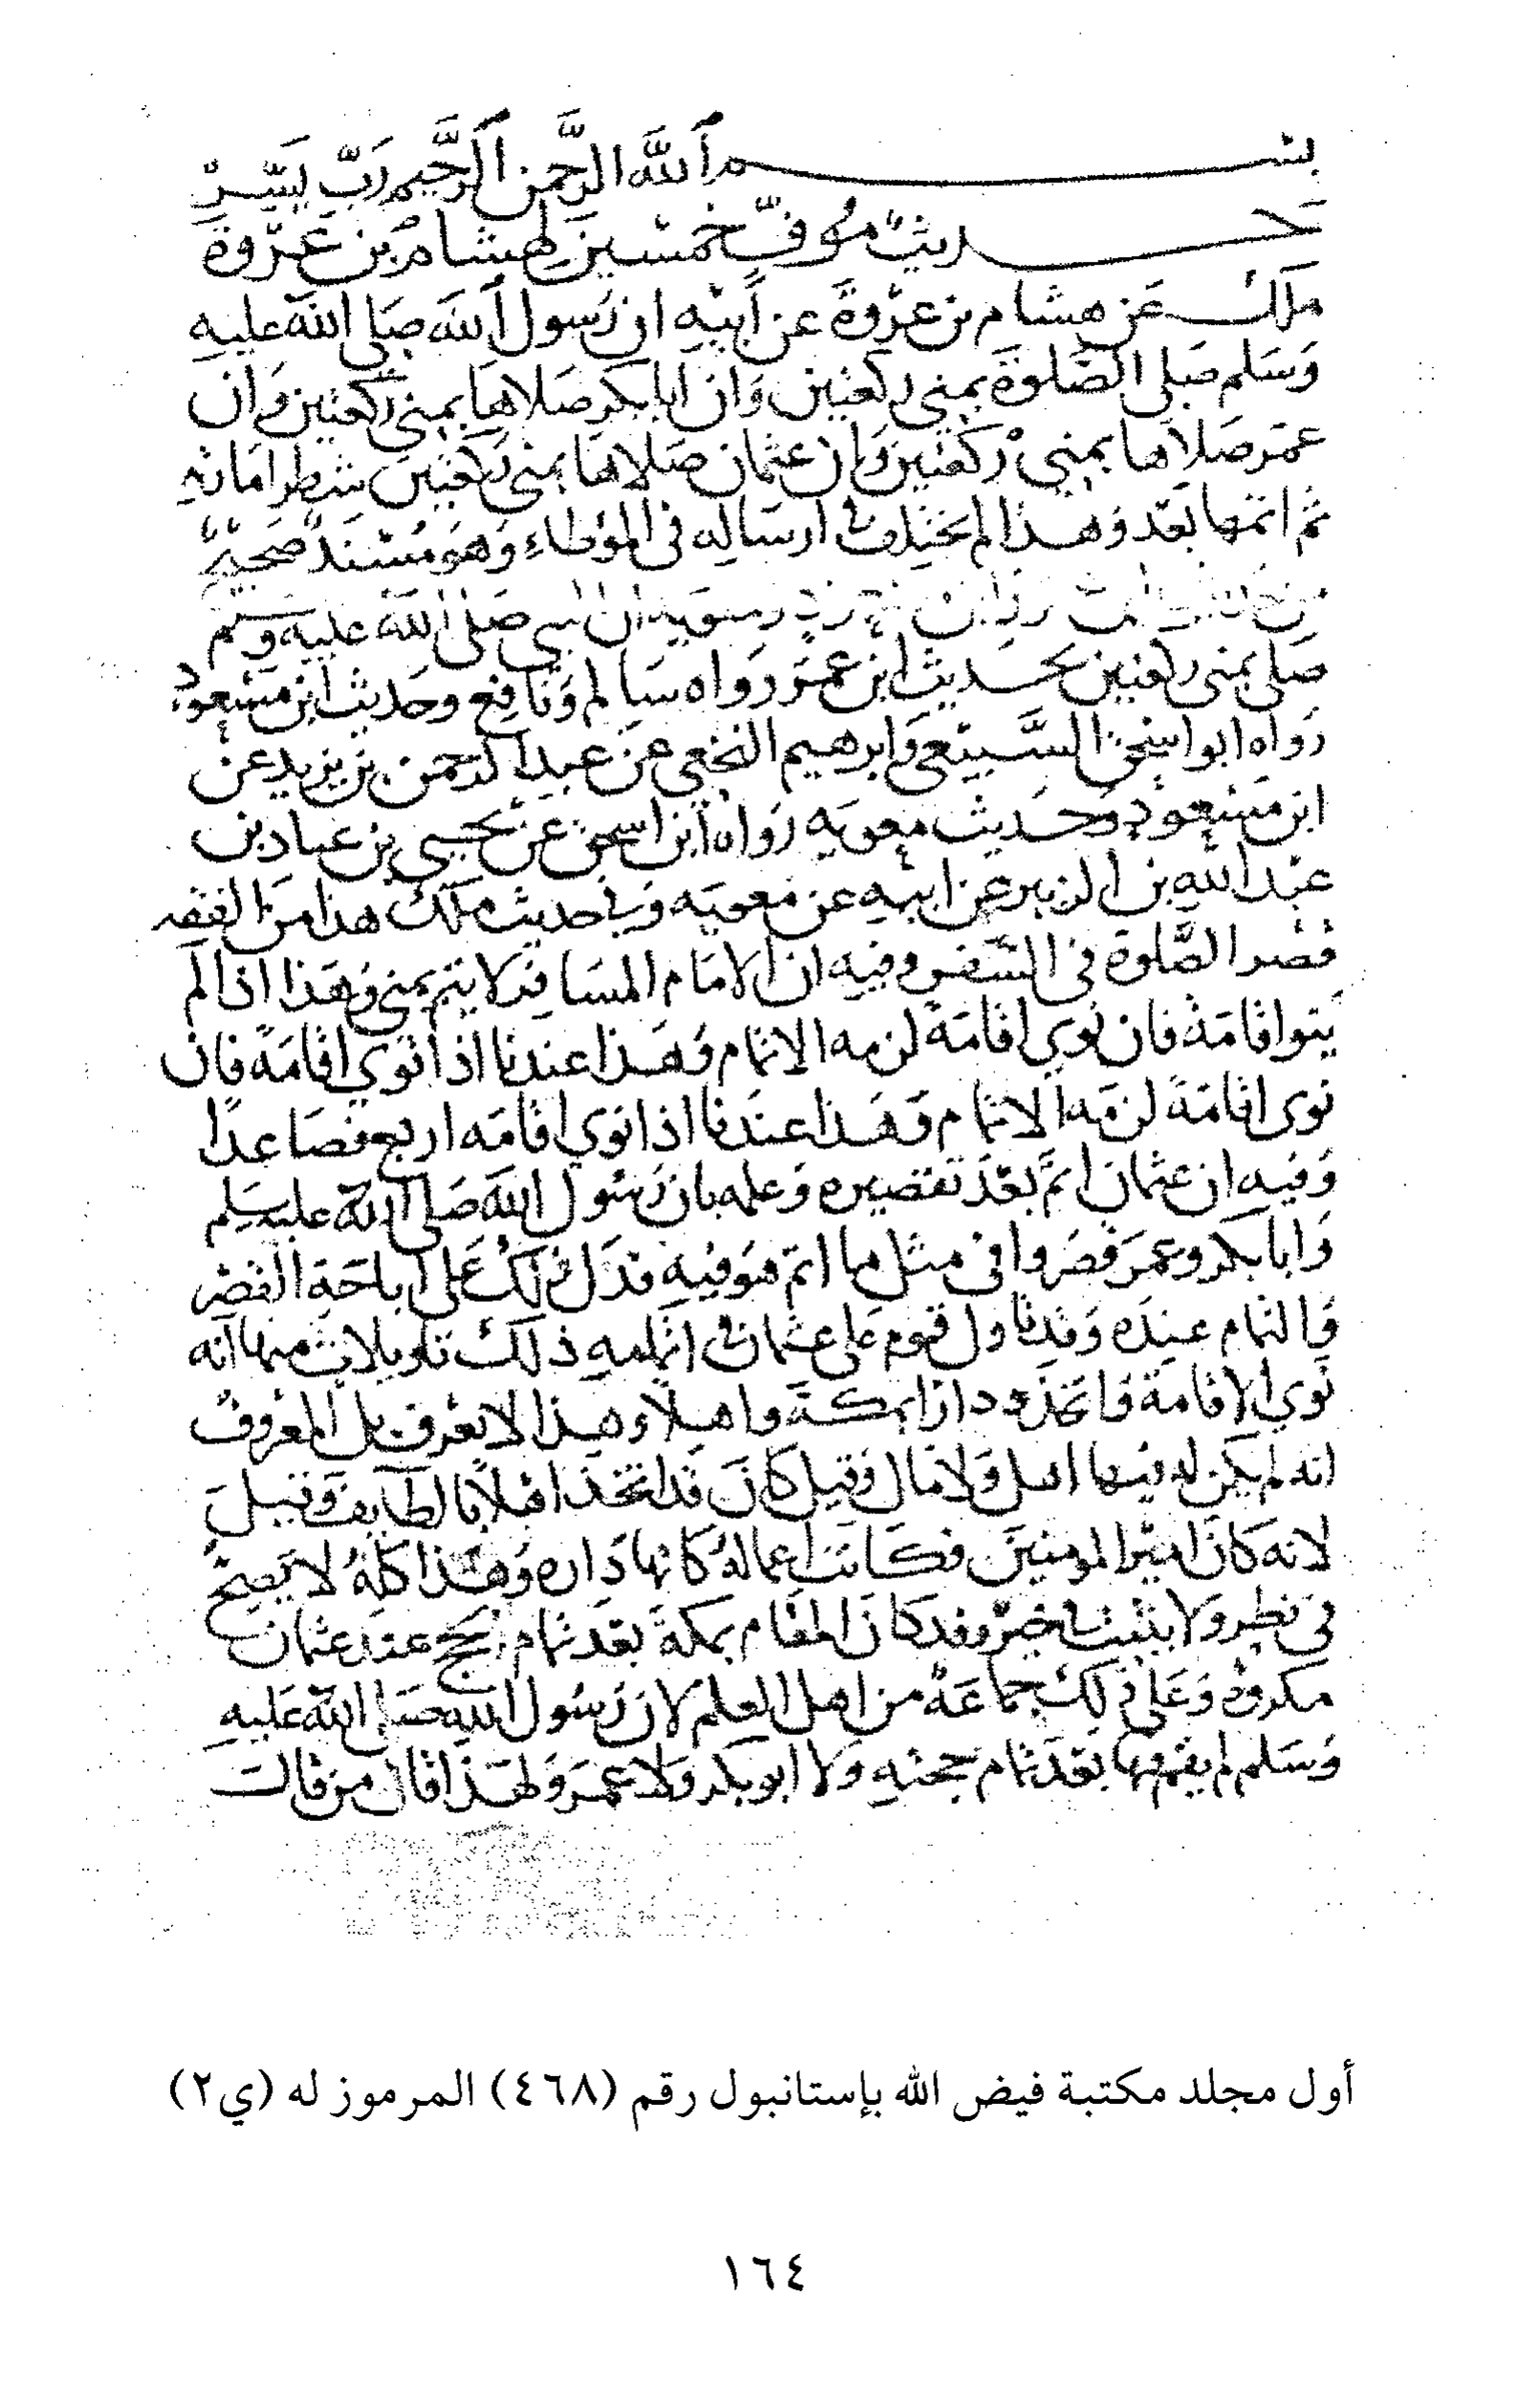 بسم الله الرحمن الرحيم رب يسر
حديث موفي خمسين لهشام بن عروة
ملك عن هشام بن عروة عن ابيه ان رسول الله صلى الله عليه
وسلم صلى الصلوة بمنى ركعتين وان ابا بكر صلاها بمنى ركعتين وان
عمر صلاها بمنى ركعتين وان عثمان صلاها بمنى ركعتين شطر امارته
ثم اتمها بعد وهذا لم يختلف في ارساله في الموطاء وهو مسند صحيح
من ومعوية ان النبي صلى الله عليه وسلم
صلى بمنى ركعتين بحديث ابن عمر رواه سالم ونافع وحديث ابن مسعود
رواه ابو اسحق السبيعي وابرهيم النخعي عن عبد الرحمن بن يزيد عن
ابن مسعود وحديث معويه رواه ابن اسحق عن يحيى بن عباد بن
عبد الله بن الزبير عن ابيه عن معويه وفي حديث ملك هذا من الفقه
قصر الصلوة في السفر وفيه ان الامام المسافر لا يتم بمنى وهذا اذا لم
ينو اقامة فان نوى اقامة لزمه الاتمام وهذا عندنا اذا نوى اقامة فان
نوى اقامة لزمه الاتمام وهذا عندنا اذا نوى اقامه اربع فصاعدا
وفيه ان عثمان اتم بعد تقصيره وعلمه بان رسول الله صلى الله عليه وسلم
وابا بكر وعمر قصروا في مثل ما اتم هو فيه فدل ذلك على اباحة القصر
والتمام عنده وقد تاول قوم على عثمان في اتمامه ذلك تاويلات منها انه
نوى الاقامة فاتخذ دارا بمكة واهلا وهذا لا يعرف بل المعروف
انه لم يكن له فيها اهل ولا مال وقيل كان قد اتخذ اهلا بالطايف وقيل
لانه كان امير المومنين فكانت اعماله كانها داره وهذا كله لا يصح
في نظر ولا يثبت في خبر وقد كان المقام بمكة بعد تمام الحج عند عثمان
مكروه وعلى ذلك جماعة من اهل العلم لان رسول الله صلى الله عليه
وسلم لم يقم بها بعد تمام حجته ولا ابو بكر ولا عمر ولهذا قال من قال
أول مجلد مكتبة فيض الله بإستانبول رقم (٤٦٨) المرموز له (ي٢)
١٦٤